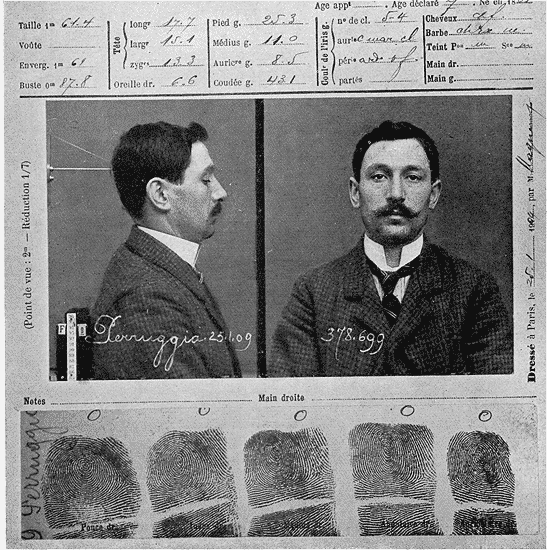 Age app^t Age déclaré Né en 18
Taille 1^m 61.4
Voûte
Enverg. 1^m 61
Buste 0^m 87.8
Tête
long^r 17.7
larg^r 15.1
zyg^e 13.3
Oreille dr. 6.6
Pied g. 25.3
Médius g. 11.0
Auric^re g. 8.5
Coudée g. 43.1
Coul^r de l'iris g.
n° de cl. 5-4
aur^le mar cl
pér^ie
partés
Cheveux
Barbe
Teint P^on m S^ne m
Main dr.
Main g.
(Point de vue : 2^m — Réduction 1/7)
Perruggia. 25.1.09
378.699
Dressé à Paris, le 25-1 1909, par M.
Notes Main droite
Perruggia
Pouce dr.
Annulaire dr.